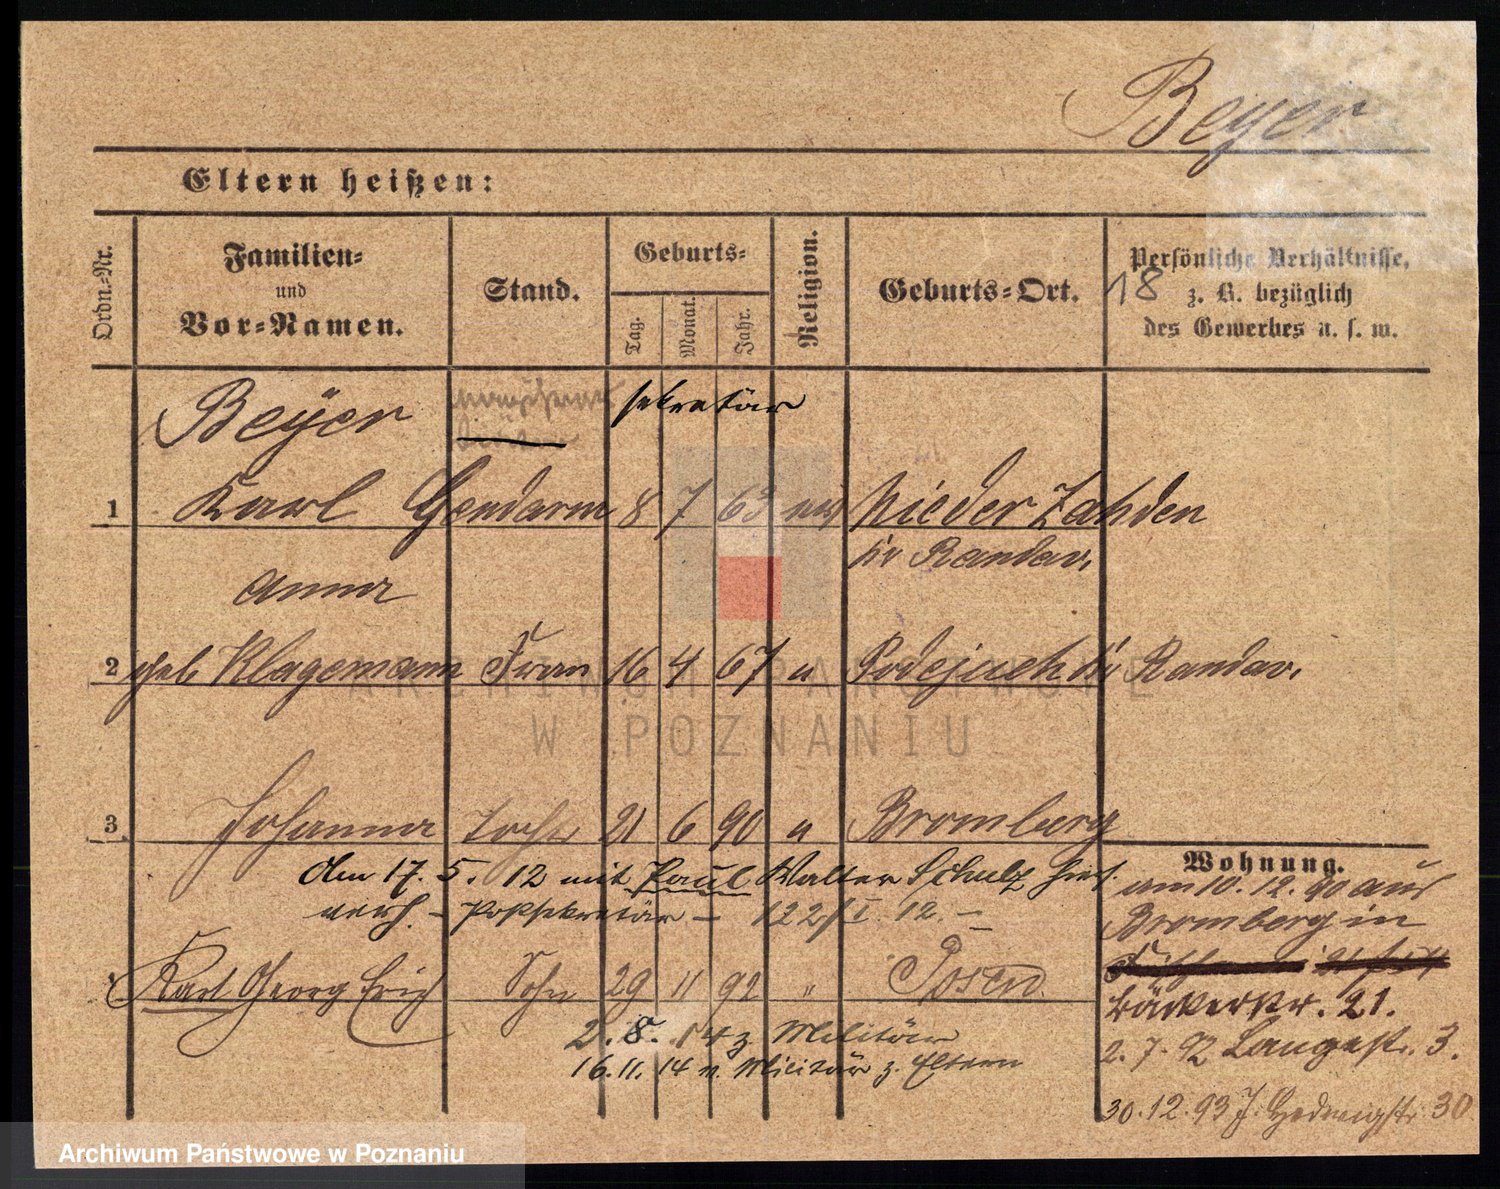 Beyer
Eltern heißen:
Ordn.-Nr.
Familien-
und
Vor-Namen.
Stand.
Geburts-
Tag.
Monat.
Jahr.
Religion.
Geburts-Ort.
Persönliche Verhältnisse,
z. B. bezüglich
des Gewerbes u. s. w.
18
Beyer sekretär
1 Karl Gendarm 8 7 63 Nieder Zahden
Kr Randow.
Anna
2 geb Klagemann Frau 16 4 67 u Podejuch Kr Randow.
3. Johanna Tochter 21 6 90 u Bromberg
Am 17. 5. 12 mit Paul Walter Schulz hier
verh. – Postsekretär – 122/I. 12. –
Karl Georg Erich Sohn 29 11 92 " Posen
2. 8. 14 z. Militär
16. 11. 14 v. Militär z. Eltern
Wohnung.
am 10. 12. 90 aus
Bromberg in
Bäckerstr. 21.
2. 7. 92 Langestr. 3.
30. 12. 93 Hedwigstr. 30
ARCHIWUM PAŃSTWOWE
W POZNANIU
Archiwum Państwowe w Poznaniu